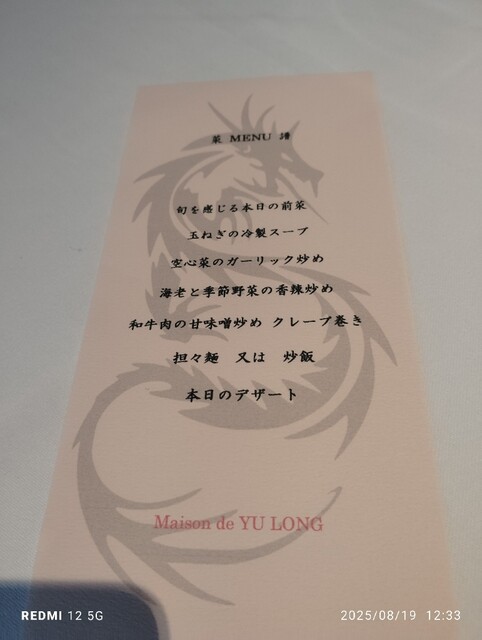 菜 MENU 譜
旬を感じる本日の前菜
玉ねぎの冷製スープ
空心菜のガーリック炒め
海老と季節野菜の香辣炒め
和牛肉の甘味噌炒め クレープ巻き
担々麺 又は 炒飯
本日のデザート
Maison de YU LONG
REDMI 12 5G
2025/08/19 12:33